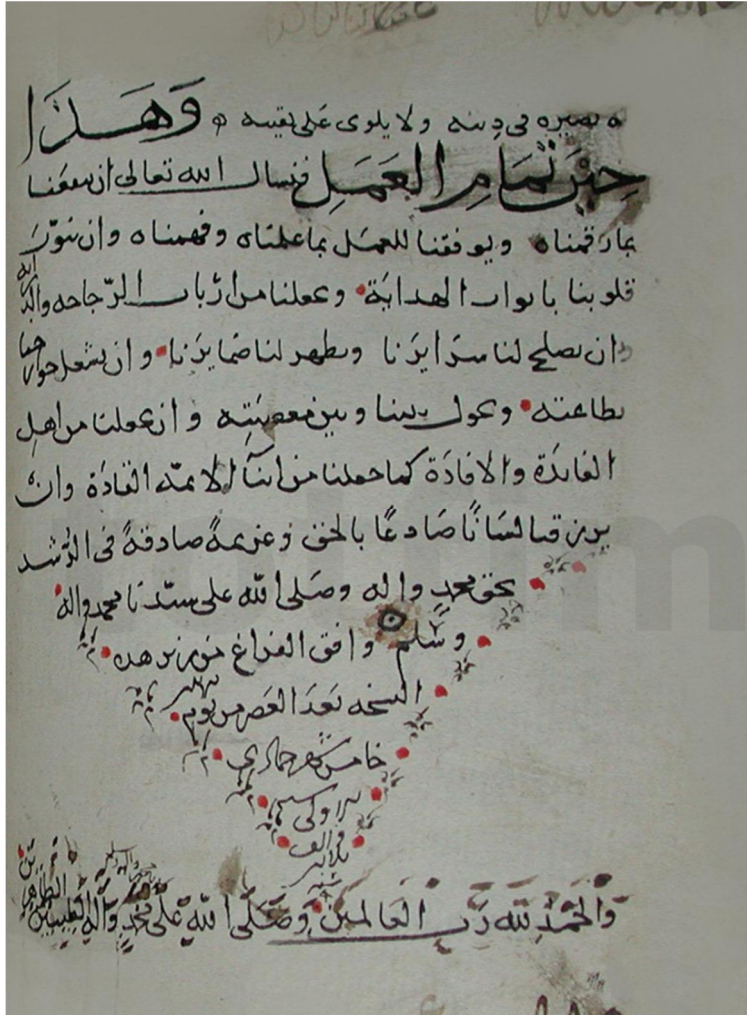 ه بصيره في دينه ولا يلوي على نفسه وَهَــذَا
حِيْنَ تَمَامِ العَمَلِ فنسال الله تعالى ان ينفعنا
بما رقمناه ويوفقنا للعمل بما علمناه وفهمناه وان ينوّر
قلوبنا بانوار الهداية وجعلنا من ارباب الرّجاحه والدرايه
وان يصلح لنا سرايرنا ويطهر لنا ضمايرنا وان يشغل جوارحنا
بطاعته ويحول بيننا وبين معصيته وان يجعلنا من اهل
الفائدة والافادة كما جعلنا من ابنآ الائمّه القادة وان
يرزقنا لسانًا صادعًا بالحق وعزيمةً صادقةً في الرّشد
بحق محمدٍ واله وصلى الله على سيّدنا محمد واله
وسلم وافق الفراغ من زبر هذه
النسخه بعد العصر من يوم
خامس شهر جمادي
والحمدُ لله رَبِّ العالمين وصَلّى اللهُ عَلَى محمّدٍ وآله الطيبين الطاهرين